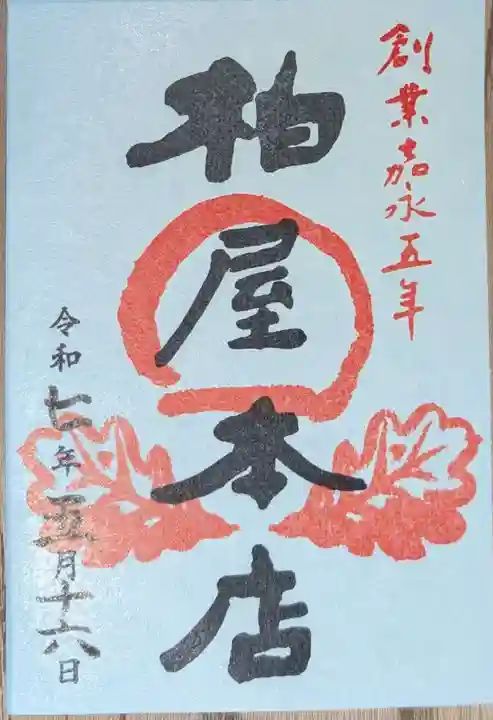 創業嘉永五年
柏屋本店
令和七年五月十六日